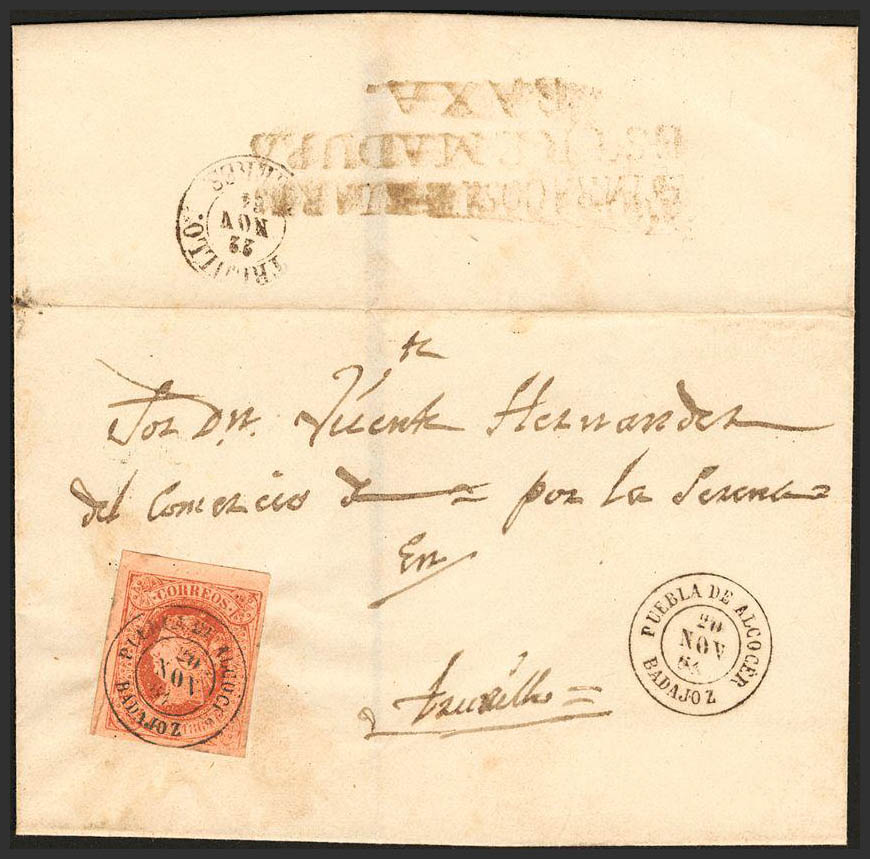 BAXA
ESTREMADURA
TRUJILLO.
22
NOV
64
Sor Dn. Vicente Hernandez
del Comercio de = por la Serena =
En
Truxillo =
CORREOS
PUEBLA DE ALCOCER
20
NOV
64
BADAJOZ
PUEBLA DE ALCOCER
20
NOV
64
BADAJOZ